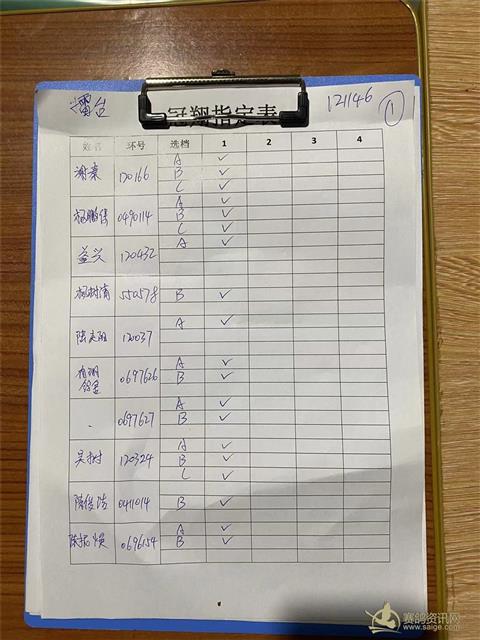 擂台 冠翔指定表 121146 ①
姓名 环号 选档 1 2 3 4
谢豪 120166 A ✓
B ✓
C ✓
0490114 A ✓
B ✓
C ✓
益兴 120432 A ✓
杨树清 550578 B ✓
120037 A ✓
0697626 A ✓
B ✓
. 0697627 A ✓
B ✓
吴树 120324 A ✓
B ✓
C ✓
陈俊 0411014 B ✓
陈振 0696154 A ✓
B ✓
赛鸽资讯网
www.saige.com